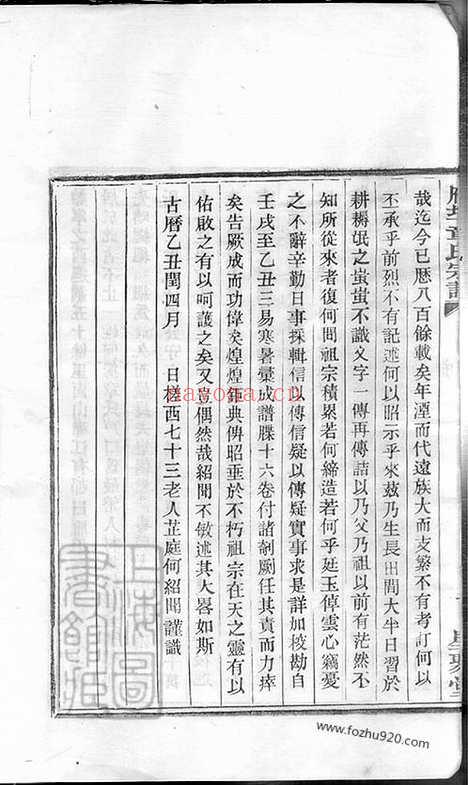 哉迄今已歷八百餘載矣年湮而代遠族大而支繁不有考訂何以
丕承乎前烈不有記述何以昭示乎來茲乃生長田間大半日習於
耕耨氓之蚩蚩不識文字一傳再傳詰以乃父乃祖以前有茫然不
知所從來者復何問祖宗積累若何締造若何乎延玉倬雲心竊憂
之不辭辛勤日事採輯信以傳信疑以傳疑實事求是詳加校勘自
壬戌至乙丑三易寒暑稾成譜牒十六卷付諸剞劂任其責而力瘁
矣告厥成而功偉矣煌煌鉅典俾昭垂於不朽祖宗在天之靈有以
佑啟之有以呵護之矣又豈偶然哉紹聞不敏述其大畧如斯
古曆乙丑閏四月 日村西七十三老人芷庭何紹聞謹識
章氏宗譜
上海圖書館藏
nayona.cn
www.fozhu920.com